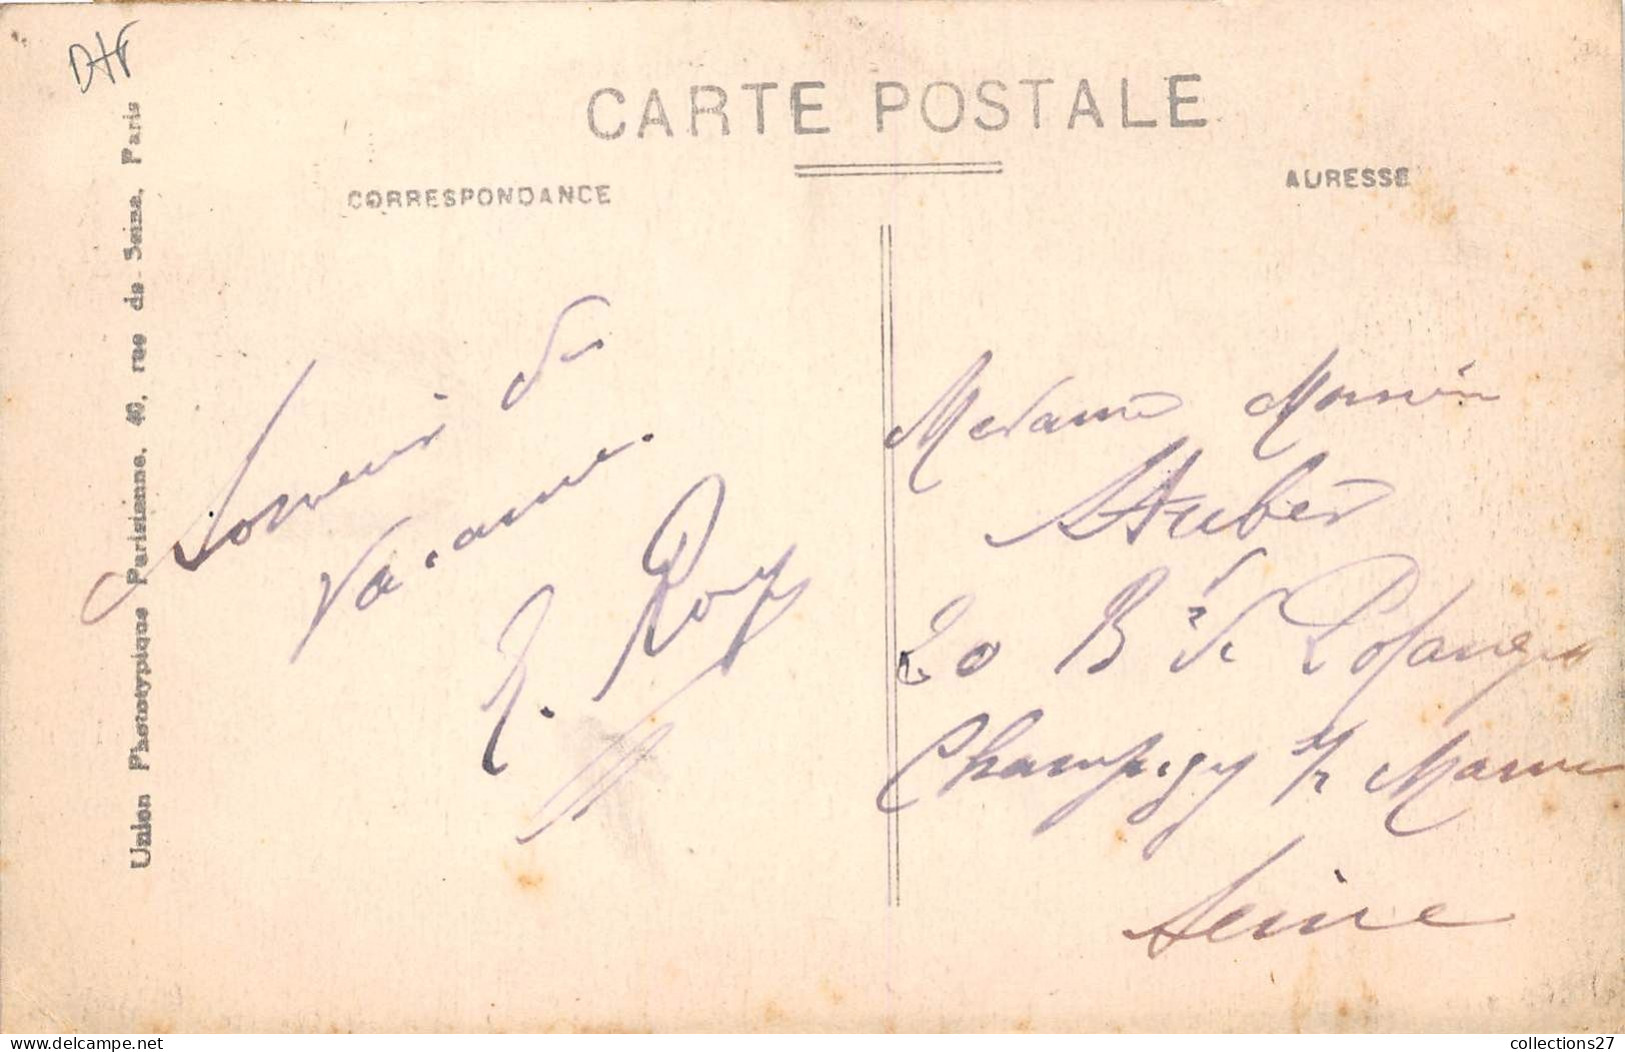 CARTE POSTALE
CORRESPONDANCE
ADRESSE
Union Phototypique Parisienne, 40, rue de Seine, Paris
Souvenir de
Vacance.
Roy
Madame
Auber
20 B d de Polangis
Champigny s/ Marne
Seine
collections27